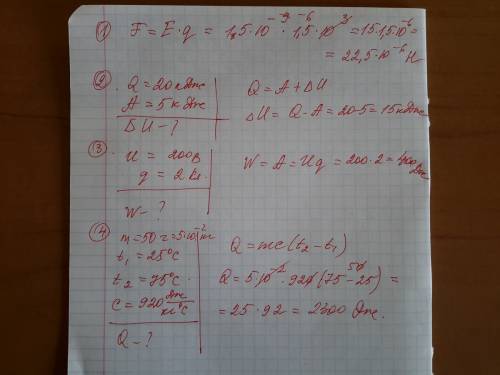 ① F = E · q = 1,5·10⁻⁹ · 1,5·10³ = 15·1,5·10⁻⁶ =
= 22,5·10⁻⁶ Н
② Q = 20 кДж
A = 5 кДж
ΔU - ?
Q = A + ΔU
ΔU = Q - A = 20 - 5 = 15 кДж
③ U = 200 В
q = 2 Кл.
W - ?
W = A = Uq = 200 · 2 = 400 Дж
④ m = 50 г = 5·10⁻² кг
t₁ = 25°C
t₂ = 75°C
C = 920 Дж/кг°C
Q - ?
Q = mc(t₂ - t₁)
Q = 5·10⁻² · 920 (75 - 25) =
= 25 · 92 = 2300 Дж.